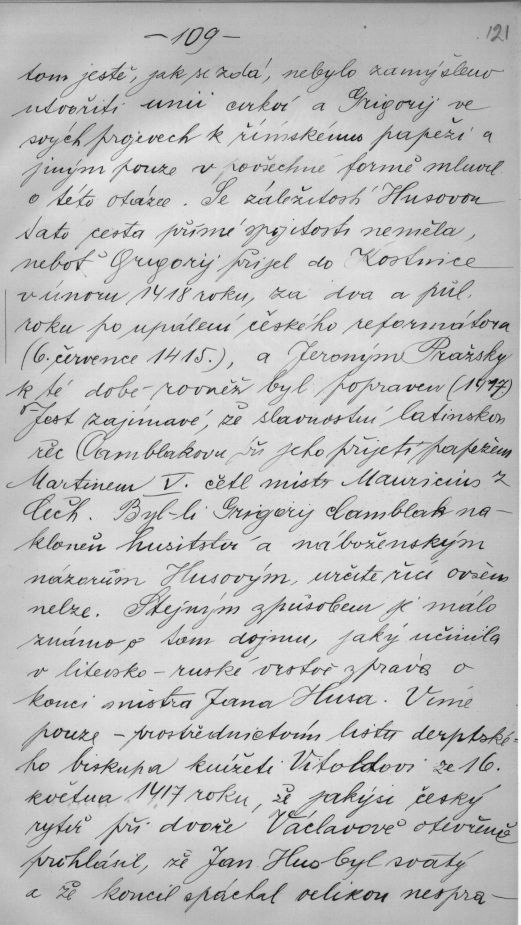 -109-
121
tom jestě, jak se zdá, nebylo zamýšleno
utvořiti unii cirkví a Grigorij ve
svých projevech k římskému papeži a
jiným pouze v povšechné formě mluvil
o této otázce. Se záležitostí Husovou
tato cesta přímé spojitosti neměla,
neboť Grigorij přijel do Kostnice
v únoru 1418 roku, za dva a půl
roku po upálení českého reformátora
(6. července 1415.), a Jeroným Pražský
k té době rovněž byl popraven (1417)
Jest zajímavé, že slavnostní latinskou
řeč Camblakovu při jeho přijetí papežem
Martinem V. četl mistr Mauricius z
Čech. Byl-li Grigorij Camblak na-
kloněn husitství a náboženským
názorům Husovým, určitě říci ovšem
nelze. Stejným způsobem je málo
známo o tom dojmu, jaký učinila
v litevsko-ruské vrstvě zpráva o
konci mistra Jana Husa. Víme
pouze - prostřednictvím listu derptské-
ho biskupa knížeti Vitoldovi ze 16.
května 1417 roku, že jakýsi český
rytíř při dvoře Václavově otevřeně
prohlásil, že Jan Hus byl svatý
a že koncil spáchal velikou nespra-